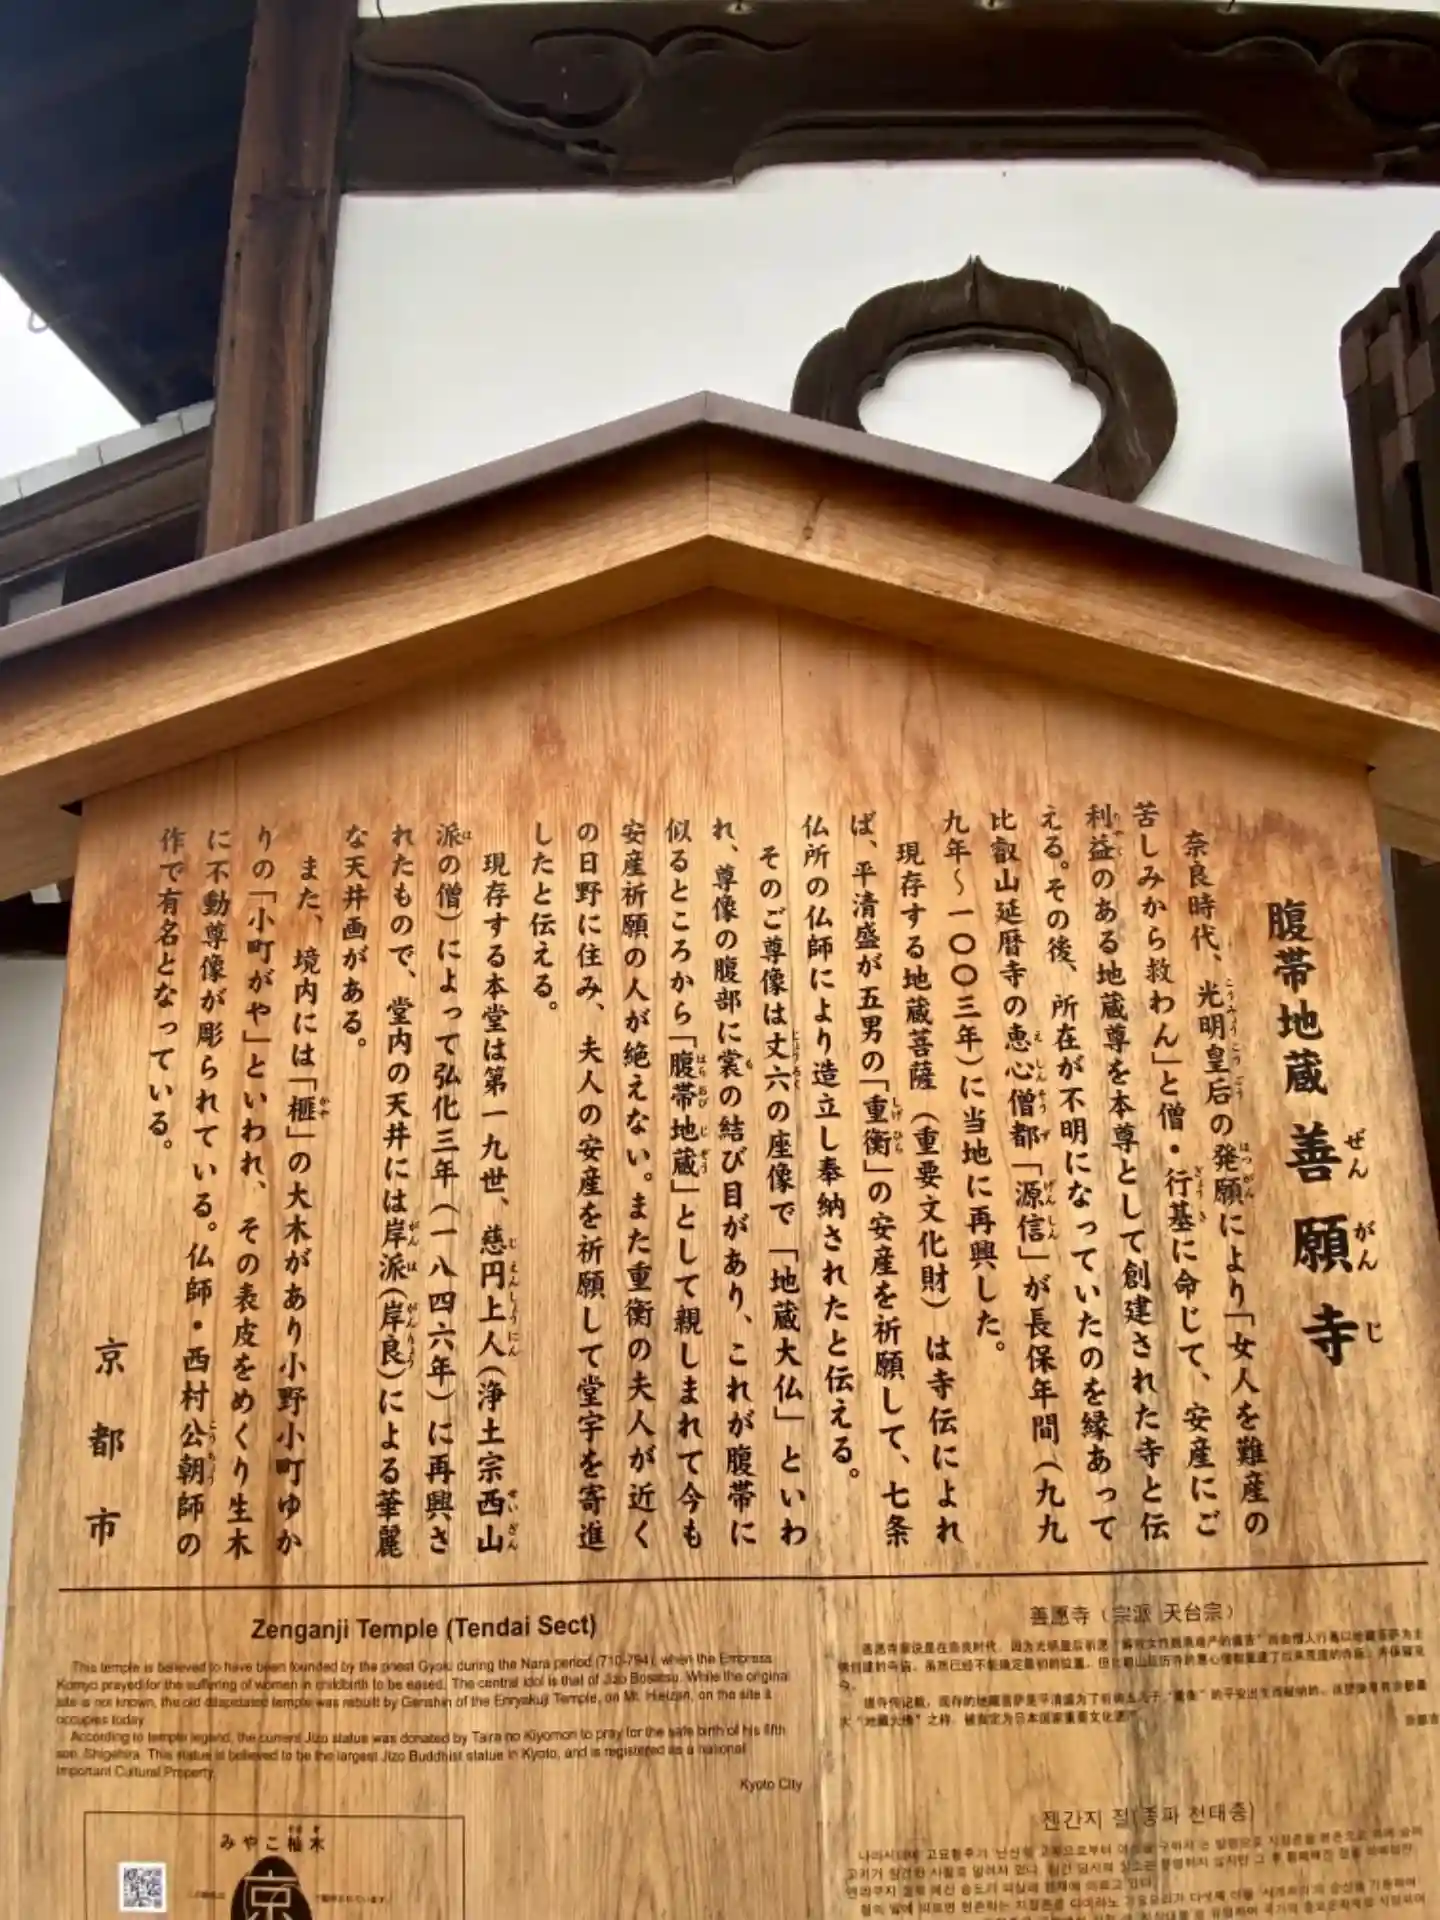 腹帯地蔵 善願寺
ぜんがんじ
奈良時代、光明皇后の発願により「女人を難産の
苦しみから救わん」と僧・行基に命じて、安産にご
利益のある地蔵尊を本尊として創建された寺と伝
える。その後、所在が不明になっていたのを縁あって
比叡山延暦寺の恵心僧都「源信」が長保年間(九九
九年～一〇〇三年)に当地に再興した。
現存する地蔵菩薩(重要文化財)は寺伝によれ
ば、平清盛が五男の「重衡」の安産を祈願して、七条
仏所の仏師により造立し奉納されたと伝える。
そのご尊像は丈六の座像で「地蔵大仏」といわ
れ、尊像の腹部に裳の結び目があり、これが腹帯に
似るところから「腹帯地蔵」として親しまれて今も
安産祈願の人が絶えない。また重衡の夫人が近く
の日野に住み、夫人の安産を祈願して堂宇を寄進
したと伝える。
現存する本堂は第一九世、慈円上人(浄土宗西山
派の僧)によって弘化三年(一八四六年)に再興さ
れたもので、堂内の天井には岸派(岸良)による華麗
な天井画がある。
また、境内には「榧」の大木があり小野小町ゆか
りの「小町がや」といわれ、その表皮をめくり生木
に不動尊像が彫られている。仏師・西村公朝師の
作で有名となっている。
京都市
Zenganji Temple (Tendai Sect)
This temple is believed to have been founded by the priest Gyoki during the Nara period (710-794), when the Empress
Komyo prayed for the suffering of women in childbirth to be eased. The central idol is that of Jizo Bosatsu. While the original
site is not known, the old dilapidated temple was rebuilt by Genshin of the Enryakuji Temple, on Mt. Hieizan, on the site it
occupies today.
According to temple legend, the current Jizo statue was donated by Taira no Kiyomori to pray for the safe birth of his fifth
son, Shigehira. This statue is believed to be the largest Jizo Buddhist statue in Kyoto, and is registered as a national
Important Cultural Property.
Kyoto City
善愿寺(宗派 天台宗)
젠간지 절(종파 천태종)
みやこ杣木
京